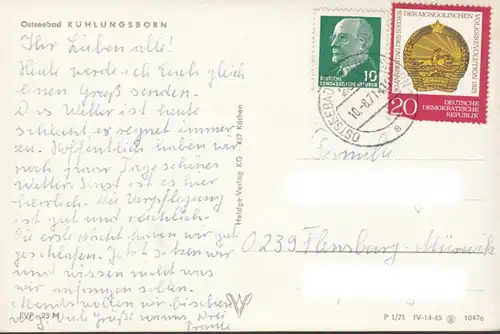 Ostseebad KÜHLUNGSBORN
Ihr Lieben alle!
Heute werde ich Euch gleich
einen Gruß senden.
Das Wetter ist heute
schlecht, es regnet immer
zu. Hoffentlich haben wir
noch paar Tage schönes
Wetter. Sonst ist es hier
herrlich. Die Verpflegung
ist gut und reichlich.
Die erste Nacht haben wir gut
geschlafen. Jetzt sitzen wir
und wissen nicht was
wir anfangen sollen.
Abends wollen wir bissel
weg. Und Grüße von uns Drei
EVP -,25 M
Heldge-Verlag KG 437 Köthen
DEUTSCHE
DEMOKRATISCHE REPUBLIK
10
DER MONGOLISCHEN
VOLKSREVOLUTION 1921
20
DEUTSCHE
DEMOKRATISCHE
REPUBLIK
OSTSEEBAD
10.-8.71
Familie
0239 Flensburg-Mürwik
P 1/71 IV-14-45 10476